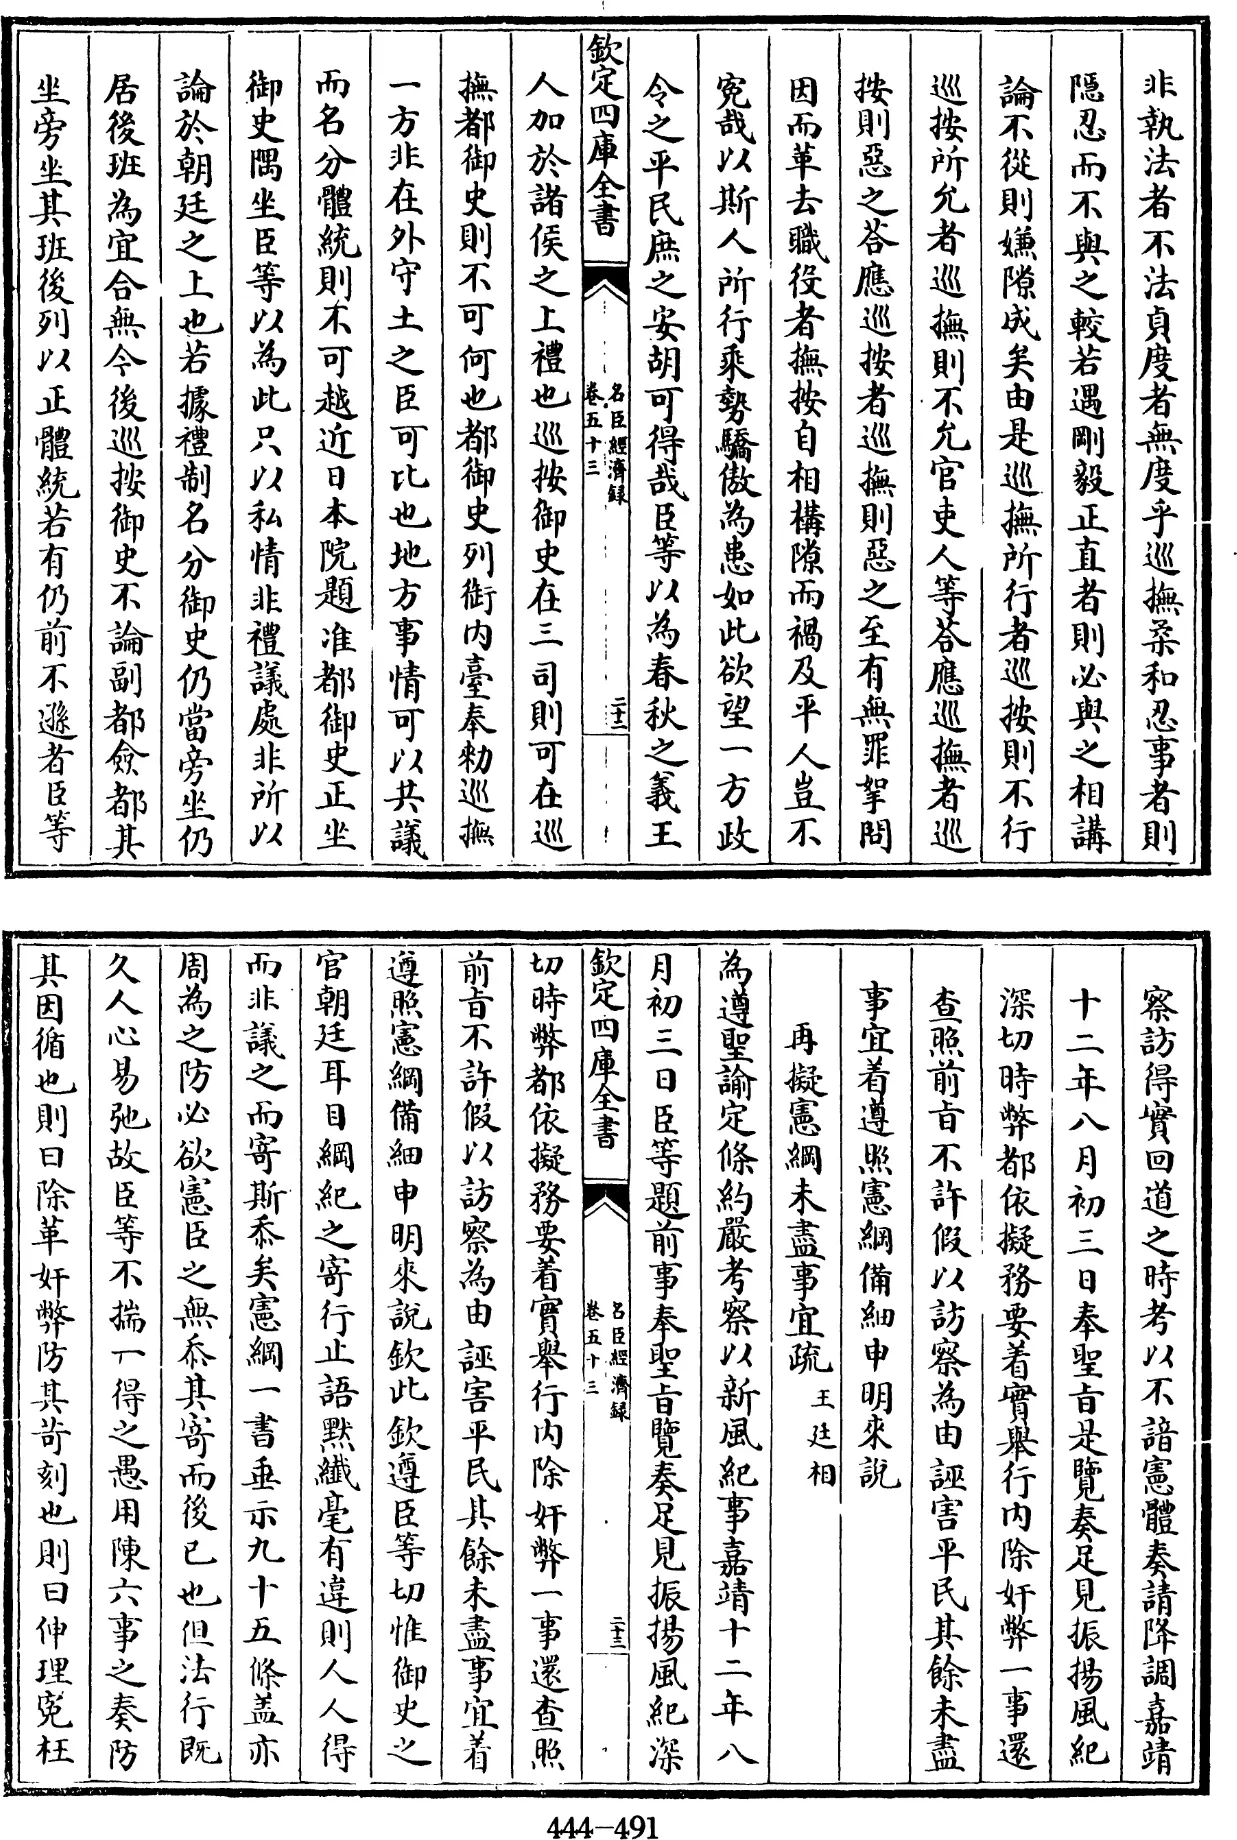 非執法者不法貞度者無度乎巡撫柔和忍事者則
隱忍而不與之較若遇剛毅正直者則必與之相講
論不從則嫌隙成矣由是巡撫所行者巡按則不行
巡按所允者巡撫則不允官吏人等荅應巡撫者巡
按則惡之荅應巡按者巡撫則惡之至有無罪拏問
因而革去職役者撫按自相構隙而禍及平人豈不
寃哉以斯人所行乘勢驕傲為患如此欲望一方政
令之平民庶之安胡可得哉臣等以為春秋之義王
欽定四庫全書
名臣經濟録
卷五十三
二十二
人加於諸侯之上禮也巡按御史在三司則可在巡
撫都御史則不可何也都御史列銜内臺奉勑巡撫
一方非在外守土之臣可比也地方事情可以共議
而名分體統則不可越近日本院題准都御史正坐
御史隅坐臣等以為此只以私情非禮議處非所以
論於朝廷之上也若據禮制名分御史仍當旁坐仍
居後班為宜合無今後巡按御史不論副都僉都其
坐旁坐其班後列以正體統若有仍前不遜者臣等
察訪得實回道之時考以不諳憲體奏請降調嘉靖
十二年八月初三日奉聖旨是覽奏足見振揚風紀
深切時弊都依擬務要着實舉行内除奸弊一事還
查照前旨不許假以訪察為由誣害平民其餘未盡
事宜着遵照憲綱備細申明來說
再擬憲綱未盡事宜疏 王廷相
為遵聖諭定條約嚴考察以新風紀事嘉靖十二年八
月初三日臣等題前事奉聖旨覽奏足見振揚風紀深
欽定四庫全書
名臣經濟録
卷五十三
二十三
切時弊都依擬務要着實舉行内除奸弊一事還查照
前旨不許假以訪察為由誣害平民其餘未盡事宜着
遵照憲綱備細申明來說欽此欽遵臣等切惟御史之
官朝廷耳目綱紀之寄行止語黙纎毫有違則人人得
而非議之而寄斯忝矣憲綱一書垂示九十五條盖亦
周為之防必欲憲臣之無忝其寄而後已也但法行既
久人心易弛故臣等不揣一得之愚用陳六事之奏防
其因循也則曰除革奸弊防其苛刻也則曰伸理寃枉
444-491